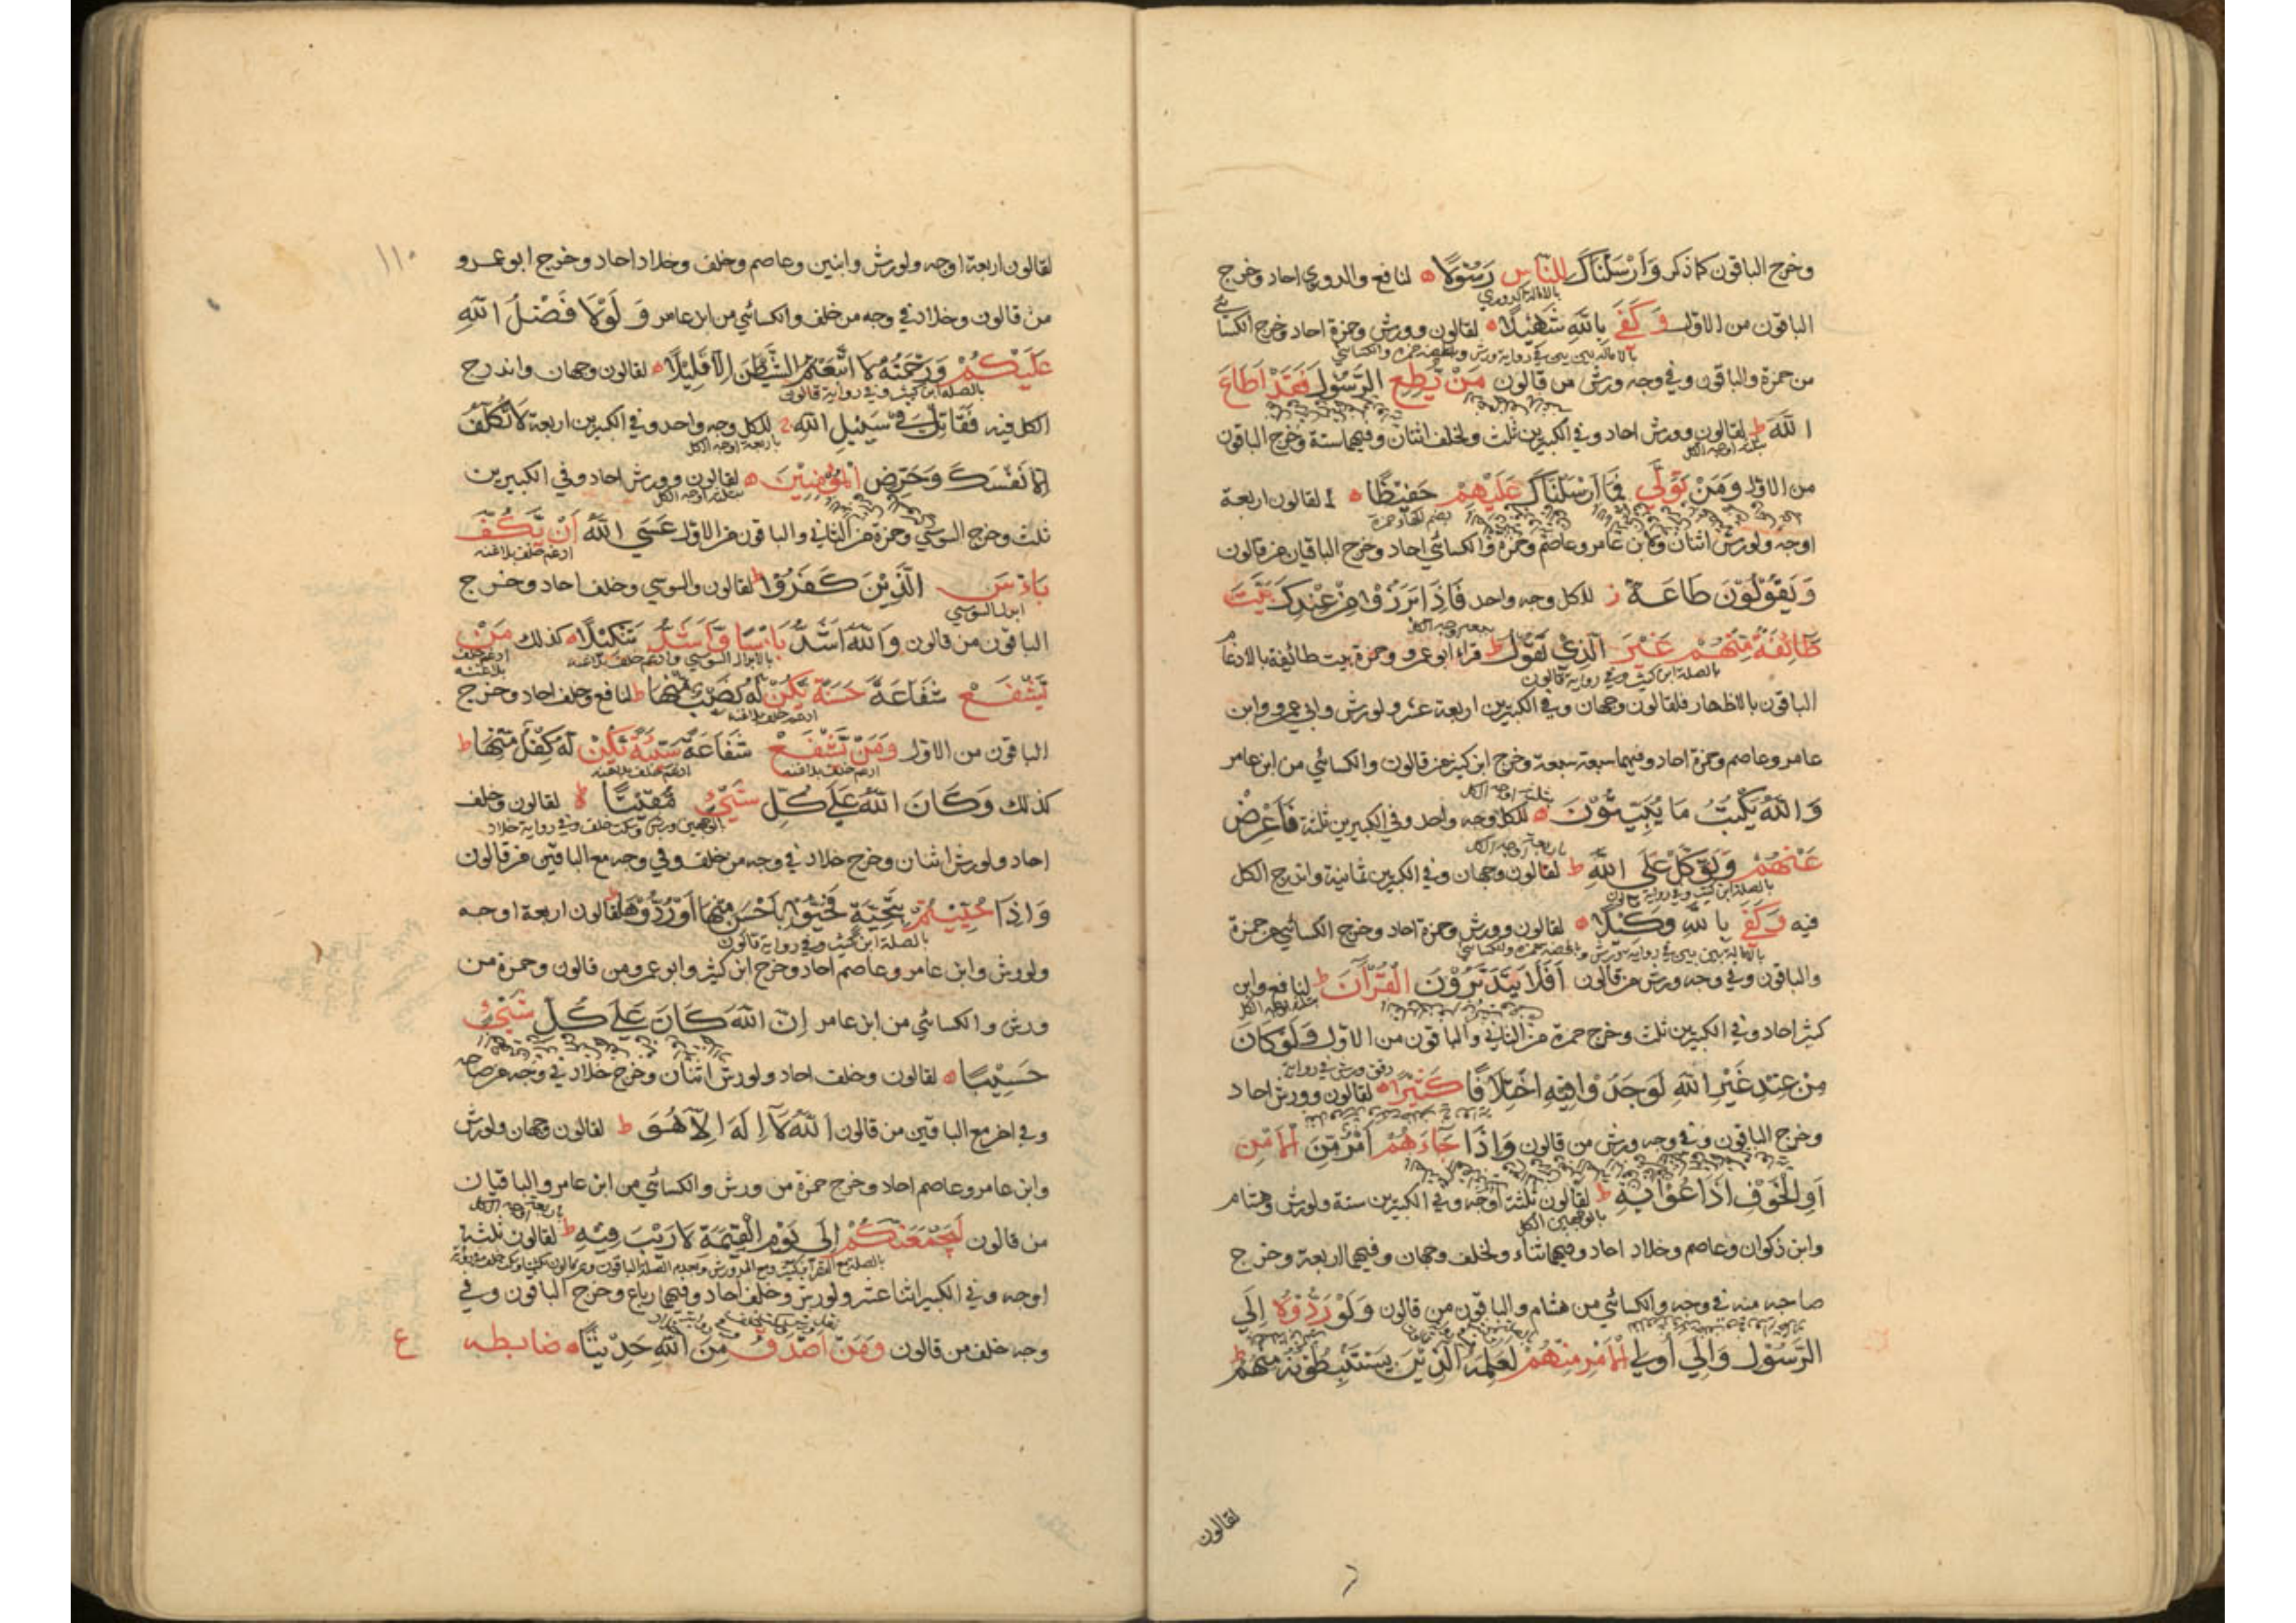 وخرج الباقون كما ذكر وَاَرْسَلْنَاكَ لِلنَّاسِ رَسُوْلًا ه لنافع والدوري احاد وخرج
بالامالة الدوري
الباقون من الاول وَكَفَى بِاللّٰهِ شَهِيْدًا ه لقالون وورش وحمزة احاد وخرج الكسائي
بالامالة بين بين في رواية ورش وبالمحضة حمزة والكسائي
من حمزة والباقون وفي وجه ورش من قالون مَنْ يُّطِعِ الرَّسُوْلَ فَقَدْ اَطَاعَ
اللّٰهَ ط لقالون وورش احاد وفي الكبيرين ثلث ولخلف اثنان وفيهما ستة وخرج الباقون
بثلثة اوجه الكل
من الاول وَمَنْ تَوَلّٰى فَمَا اَرْسَلْنَاكَ عَلَيْهِمْ حَفِيْظًا ه لقالون اربعة
بضم الهاء حمزة
اوجه ولورش اثنان ولابن عامر وعاصم وحمزة والكسائي احاد وخرج الباقيان من قالون
وَيَقُوْلُوْنَ طَاعَةٌ ز للكل وجه واحد فَاِذَا بَرَزُوْا مِنْ عِنْدِكَ بَيَّتَ
طَائِفَةٌ مِّنْهُمْ غَيْرَ الَّذِيْ تَقُوْلُ ط قراء ابو عمرو وحمزة بيت طائفة بالادغام
بالصلة ابن كثير وفي رواية قالون
الباقون بالاظهار فلقالون وجهان وفي الكبيرين اربعة عشر ولورش وابي عمرو وابن
عامر وعاصم وحمزة احاد وفيهما سبعة سبعة وخرج ابن كثير من قالون والكسائي من ابن عامر
بثلثة اوجه الكل
وَاللّٰهُ يَكْتُبُ مَا يُبَيِّتُوْنَ ه للكل وجه واحد وفي الكبيرين ثلثة فَاَعْرِضْ
باربعة اوجه الكل
عَنْهُمْ وَتَوَكَّلْ عَلَى اللّٰهِ ط لقالون وجهان وفي الكبيرين ثمانية واندرج الكل
بالصلة ابن كثير وفي رواية قالون
فيه وَكَفَى بِاللّٰهِ وَكِيْلًا ه لقالون وورش وحمزة احاد وخرج الكسائي من حمزة
بالامالة بين بين في رواية ورش وبالمحضة حمزة والكسائي
والباقون وفي وجه ورش من قالون اَفَلَا يَتَدَبَّرُوْنَ الْقُرْآنَ ط لنافع وابن
بثلثة اوجه الكل
كثير احاد وفي الكبيرين ثلث وخرج حمزة من الثاني والباقون من الاول وَلَوْ كَانَ
مِنْ عِنْدِ غَيْرِ اللّٰهِ لَوَجَدُوْا فِيْهِ اخْتِلَافًا كَثِيْرًا ه لقالون وورش احاد
رقق ورش في رواية
وخرج الباقون وفي وجه ورش من قالون وَاِذَا جَاءَهُمْ اَمْرٌ مِّنَ الْاَمْنِ
اَوِ الْخَوْفِ اَذَاعُوْا بِهٖ ط لقالون ثلثة اوجه وفي الكبيرين ستة ولورش وهشام
بالوجهين الكل
وابن ذكوان وعاصم وخلاد احاد وفيهما ثناء ولخلف وجهان وفيهما اربعة وخرج
صاحبه منه في وجه والكسائي من هشام والباقون من قالون وَلَوْ رَدُّوْهُ اِلَى
الرَّسُوْلِ وَاِلٰى اُولِي الْاَمْرِ مِنْهُمْ لَعَلِمَهُ الَّذِيْنَ يَسْتَنْبِطُوْنَهُ مِنْهُمْ ط
لقالون
١١٠
لقالون اربعة اوجه ولورش وابنين وعاصم وخلف وخلاد احاد وخرج ابو عمرو
من قالون وخلاد في وجه من خلف والكسائي من ابن عامر وَلَوْلَا فَضْلُ اللّٰهِ
عَلَيْكُمْ وَرَحْمَتُهُ لَا اتَّبَعْتُمُ الشَّيْطٰنَ اِلَّا قَلِيْلًا ه لقالون وجهان واندرج
بالصلة ابن كثير وفي رواية قالون
الكل فيه فَقَاتِلْ فِيْ سَبِيْلِ اللّٰهِ للكل وجه واحد وفي الكبيرين اربعة لَا تُكَلَّفُ
باربعة اوجه الكل
اِلَّا نَفْسَكَ وَحَرِّضِ الْمُؤْمِنِيْنَ ه لقالون وورش احاد وفي الكبيرين
بثلثة اوجه الكل
ثلث وخرج السوسي وحمزة من الثاني والباقون من الاول عَسَى اللّٰهُ اَنْ يَّكُفَّ
ادغم خلف بلاغنه
بَاْسَ الَّذِيْنَ كَفَرُوْا ط لقالون والسوسي وخلف احاد وخرج
ابدل السوسي
الباقون من قالون وَاللّٰهُ اَشَدُّ بَاْسًا وَّاَشَدُّ تَنْكِيْلًا ه كذلك مَنْ
بالابدال السوسي وادغم خلف بلاغنه ادغم خلف بلاغنه
يَّشْفَعْ شَفَاعَةً حَسَنَةً يَّكُنْ لَّهُ نَصِيْبٌ مِّنْهَا ط لنافع وخلف احاد وخرج
ادغم خلف بلاغنه
الباقون من الاول وَمَنْ يَّشْفَعْ شَفَاعَةً سَيِّئَةً يَّكُنْ لَّهُ كِفْلٌ مِّنْهَا ط
ادغم خلف بلاغنه ادغم خلف بلاغنه
كذلك وَكَانَ اللّٰهُ عَلٰى كُلِّ شَيْءٍ مُّقِيْتًا ه لقالون وخلف
بالوجهين ورش وسكت خلف وفي رواية خلاد
احاد ولورش اثنان وخرج خلاد في وجه من خلف وفي وجه مع الباقين من قالون
وَاِذَا حُيِّيْتُمْ بِتَحِيَّةٍ فَحَيُّوْا بِاَحْسَنَ مِنْهَا اَوْ رُدُّوْهَا ط لقالون اربعة اوجه
بالصلة ابن كثير وفي رواية قالون
ولورش وابن عامر وعاصم احاد وخرج ابن كثير وابو عمرو من قالون وحمزة من
ورش والكسائي من ابن عامر اِنَّ اللّٰهَ كَانَ عَلٰى كُلِّ شَيْءٍ
حَسِيْبًا ه لقالون وخلف احاد ولورش اثنان وخرج خلاد في وجه من صاحبه
وفي اخر مع الباقين من قالون اَللّٰهُ لَا اِلٰهَ اِلَّا هُوَ ط لقالون وجهان ولورش
وابن عامر وعاصم احاد وخرج حمزة من ورش والكسائي من ابن عامر والباقيان
باربعة اوجه الكل
من قالون لَيَجْمَعَنَّكُمْ اِلٰى يَوْمِ الْقِيٰمَةِ لَا رَيْبَ فِيْهِ ط لقالون ثلثة
اوجه وفي الكبير اثنا عشر ولورش وخلف احاد وفيهما رباع وخرج الباقون وفي
وجه خلف من قالون وَمَنْ اَصْدَقُ مِنَ اللّٰهِ حَدِيْثًا ه ضابطه ع